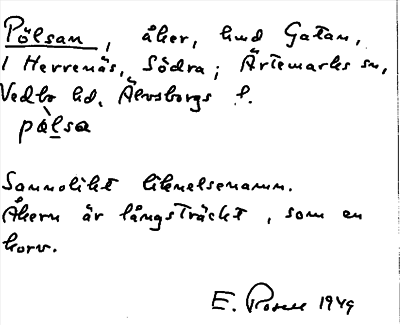 Pölsan, åker, hmd Gatan,
i Herrenäs, Södra; Ärtemarks sn,
Vedbo hd, Älvsborgs l.
pàlsa
Sannolikt liknelsenamn.
Åkern är långsträckt, som en
korv.
E. Rosell 1949